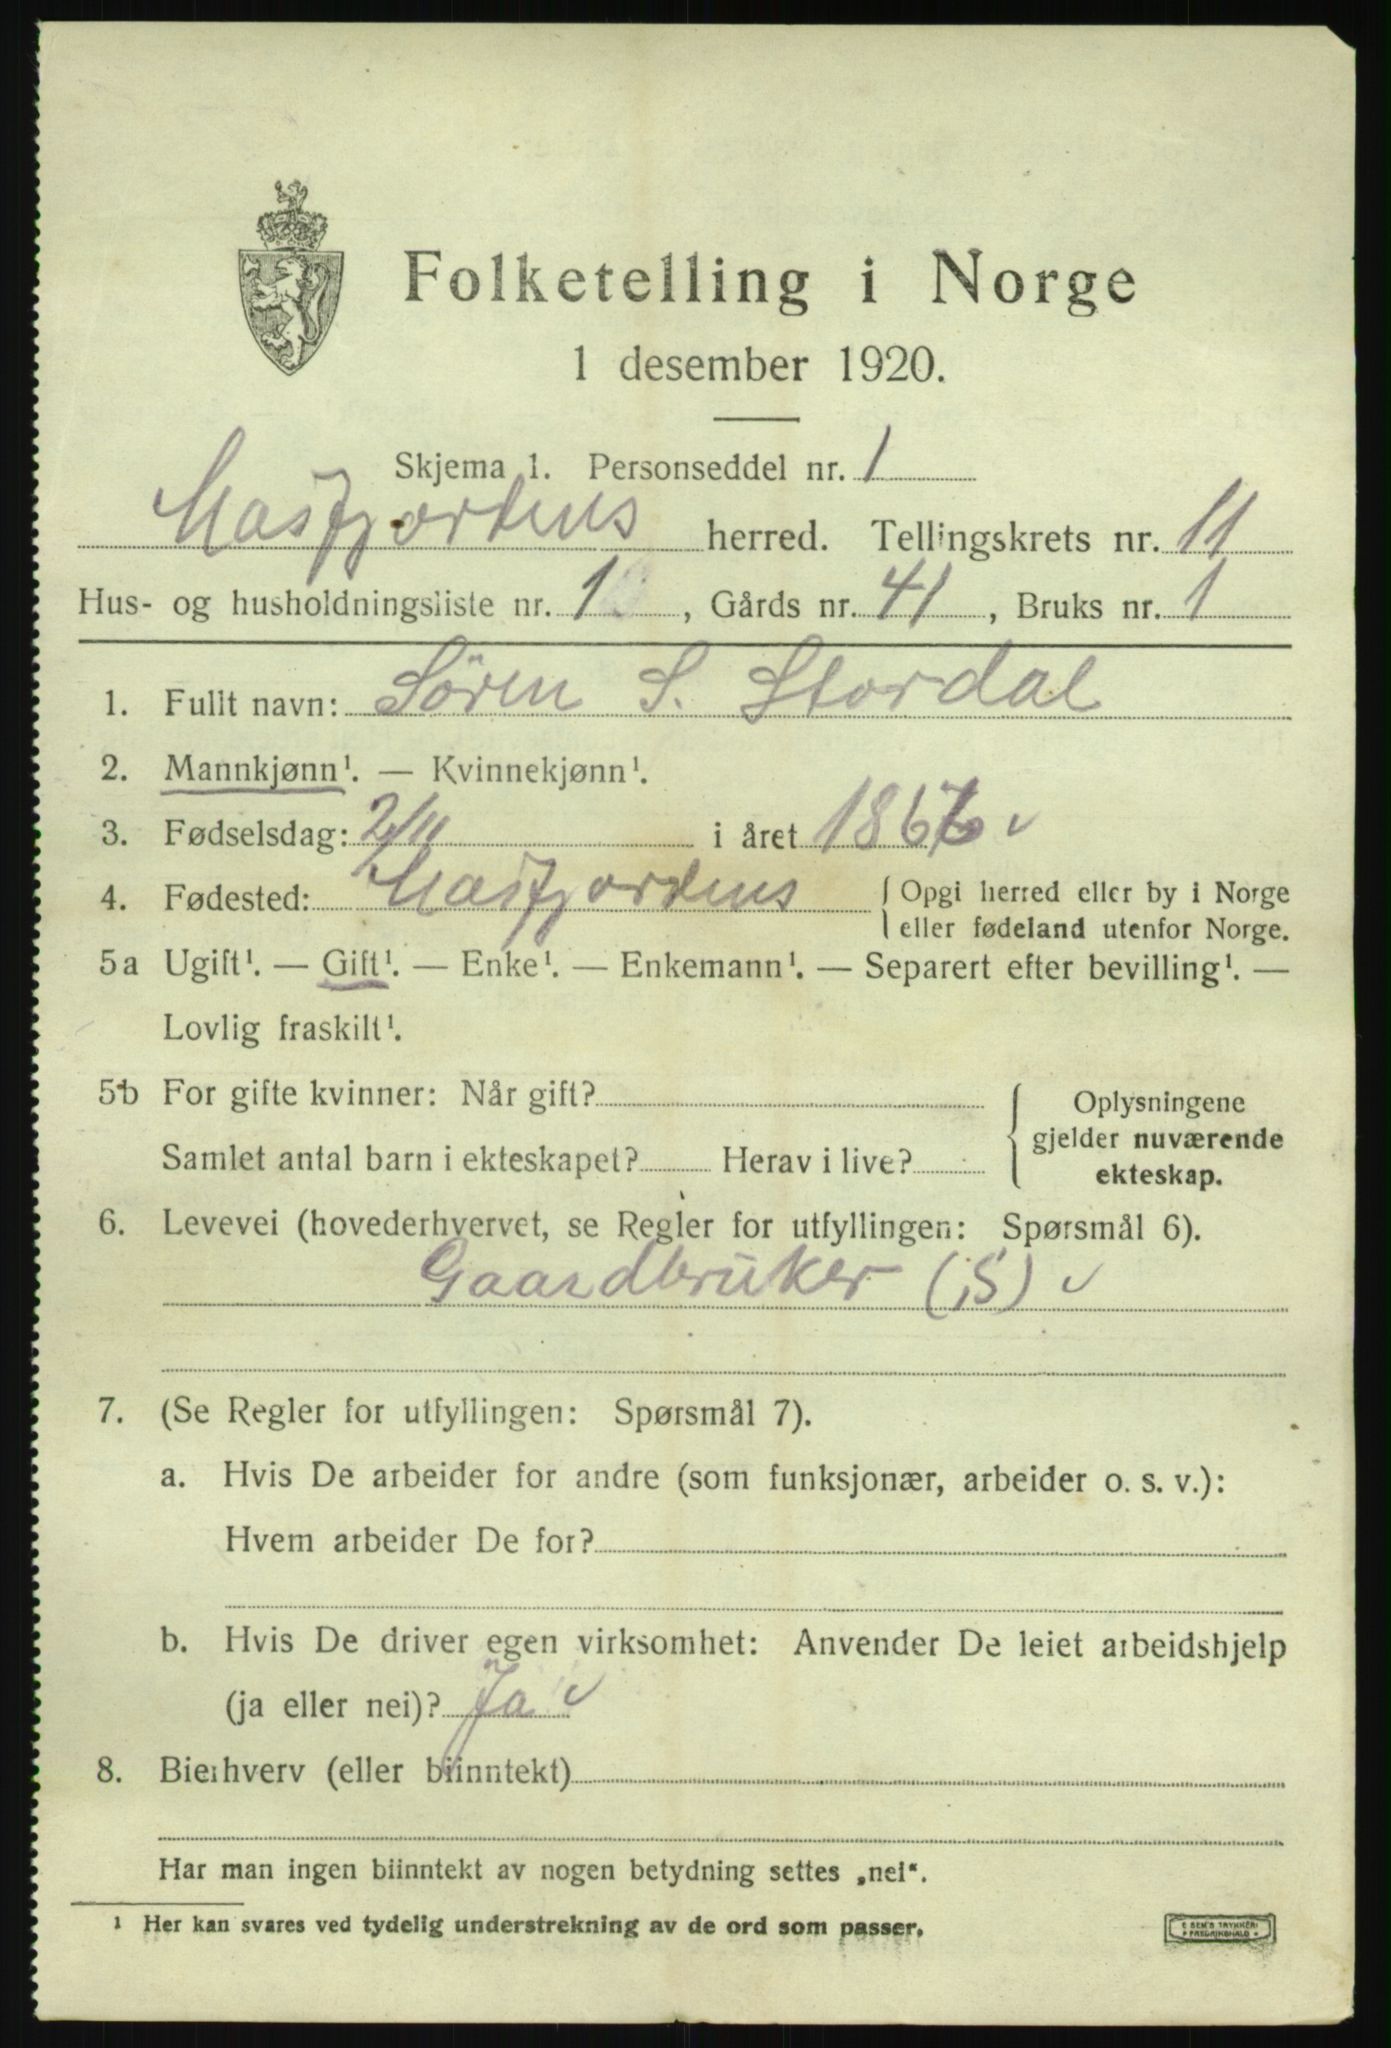 Folketelling i Norge
1 desember 1920.
Skjema 1. Personseddel nr. 1
Masfjordens herred. Tellingskrets nr. 11
Hus- og husholdningsliste nr. 1, Gårds nr. 41, Bruks nr. 1
1. Fullt navn: Søren S. Stordal
2. Mannkjønn¹. — Kvinnekjønn¹.
3. Fødselsdag: 2/11 i året
4. Fødested: Masfjordens { Opgi herred eller by i Norge
eller fødeland utenfor Norge.
5a Ugift¹. — Gift¹. — Enke¹. — Enkemann¹. — Separert efter bevilling¹. —
Lovlig fraskilt¹.
5b For gifte kvinner: Når gift? { Oplysningene
gjelder nuværende
Samlet antal barn i ekteskapet? Herav i live?
ekteskap.
6. Levevei (hovederhvervet, se Regler for utfyllingen: Spørsmål 6).
Gaardbruker (S) ✓
7. (Se Regler for utfyllingen: Spørsmål 7).
a. Hvis De arbeider for andre (som funksjonær, arbeider o. s. v.):
Hvem arbeider De for?
b. Hvis De driver egen virksomhet: Anvender De leiet arbeidshjelp
(ja eller nei)? Ja ✓
8. Bierhverv (eller biinntekt)
Har man ingen biinntekt av nogen betydning settes „nei“.
¹ Her kan svares ved tydelig understrekning av de ord som passer.
E SEM'S TRYKKERI
FREDRIKSHALD